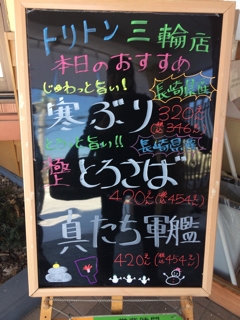 トリトン 三輪店
本日のおすすめ
じゅわっと旨い! 長崎県産
寒ぶり 320元 (税込346元)
とろっと旨い!! 長崎県産
極上 とろさば
420元 (税込454元)
真たち軍艦
420元 (税込454元)